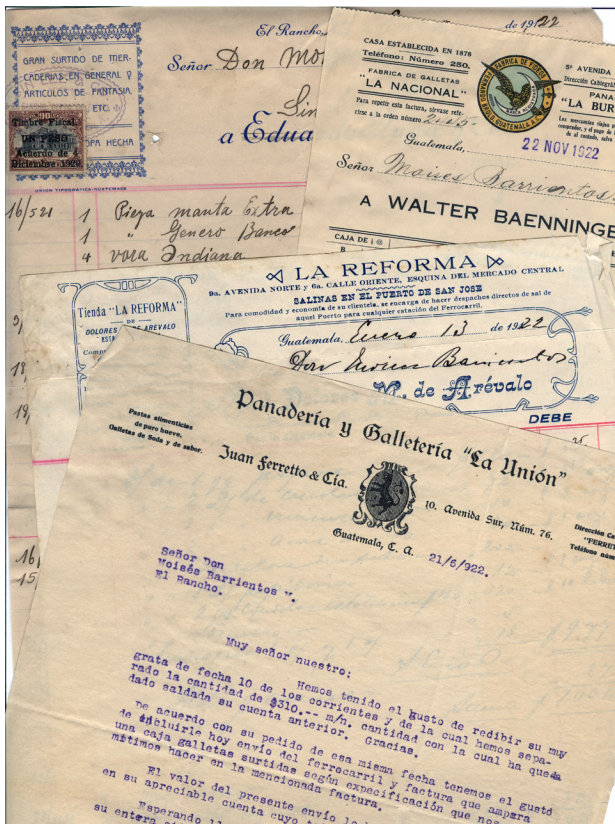 El Rancho,
de 1922
GRAN SURTIDO DE MER-
CADERIAS EN GENERAL Y
ARTICULOS DE FANTASIA,
ETC.
OPA HECHA
Señor Don Mo
a Edua
Timbre Fiscal.
UN PESO
Acuerdo de
Diciembre 1920.
UNION TIPOGRAFICA-GUATEMALA
16/521 1 Pieza manta Extra
1 " Genero Banco
4 vara Indiana
CASA ESTABLECIDA EN 1878
Teléfono: Número 250.
FABRICA DE GALLETAS
"LA NACIONAL"
Para repetir esta factura, sírvase refe-
rirse a la orden número
5ª AVENIDA
Dirección Cablegráf
PANA
"LA BUR
Las mercancías viajan p
comprador, y el pago de
al contado, salvo
Guatemala,
22 NOV 1922
Señor Moises Barrientos
A WALTER BAENNINGE
CAJA DE
LA REFORMA
9a. AVENIDA NORTE y 6a. CALLE ORIENTE, ESQUINA DEL MERCADO CENTRAL
SALINAS EN EL PUERTO DE SAN JOSE
Para comodidad y economía de su clientela, se encarga de hacer despachos directos de sal de
aquel Puerto para cualquier estación del Ferrocarril.
Tienda "LA REFORMA"
DE
DOLORES DE AREVALO
Guatemala, Enero 13 de 1922
Don Moises Barrientos
V. de Arévalo
DEBE
18,
19,
16
15
Panadería y Galletería "La Unión"
Pastas alimenticias
de puro huevo.
Galletas de Soda y de sabor.
Juan Ferretto & Cía.
10. Avenida Sur, Núm. 76.
Dirección Ca
"FERRE
Teléfono núm
Guatemala, C. A. 21/6/922.
Señor Don
Moisés Barrientos M.
El Rancho.
Muy señor nuestro:
Hemos tenido el gusto de redibir su muy
grata de fecha 10 de los corrientes y de la cual hemos sepa-
rado la cantidad de $310.-- m/n. cantidad con la cual ha queda
dado saldada su cuenta anterior. Gracias.
De acuerdo con su pedido de esa misma fecha tenemos el gusto
de incluirle hoy envio del ferrocarril y factura que ampara
una caja galletas surtidas según expecificación que nos
mitimos hacer en la mencionada factura.
El valor del presente envío lo
en su apreciable cuenta cuyo
Esperando
su entera